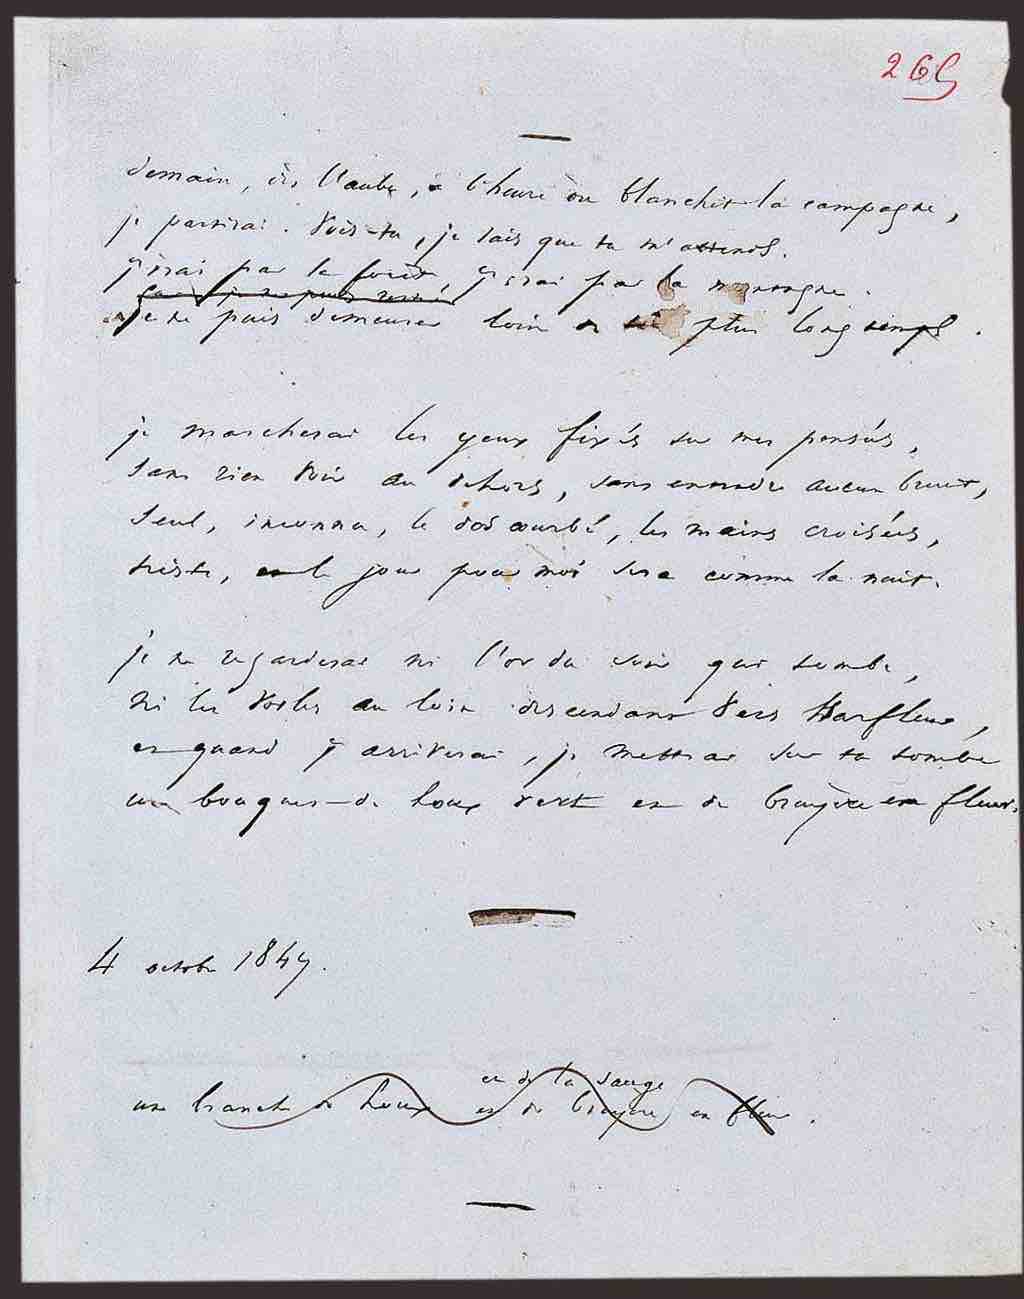 265
demain, dès l'aube, à l'heure où blanchit la campagne,
je partirai. Vois-tu, je sais que tu m'attends.
j'irai par la forêt, j'irai par la montagne.
je ne puis
je ne puis demeurer loin de toi plus longtemps.
je marcherai les yeux fixés sur mes pensées,
sans rien voir au dehors, sans entendre aucun bruit,
seul, inconnu, le dos courbé, les mains croisées,
triste, et le jour pour moi sera comme la nuit.
je ne regarderai ni l'or du soir qui tombe,
ni les voiles au loin descendant vers Harfleur,
et quand j'arriverai, je mettrai sur ta tombe
un bouquet de houx vert et de bruyère en fleur.
4 octobre 1849.
et de la sauge
une branche de houx et de bruyère en fleur.